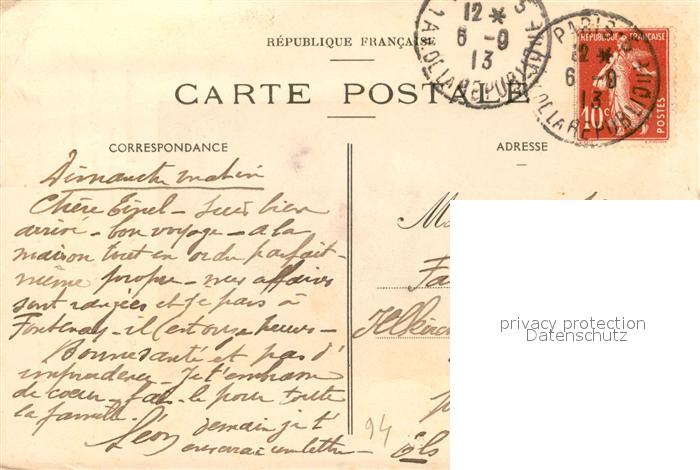 RÉPUBLIQUE FRANÇAISE
CARTE POSTALE
12 *
6 - 9
13
PL. DE LA REPUBLIQUE
PARIS - 3
12 *
6 - 9
13
PL. DE LA REPUBLIQUE
REPUBLIQUE FRANÇAISE
10c
POSTES
CORRESPONDANCE
ADRESSE
Dimanche matin
Chère - suis bien
arrivé - bon voyage - à la
maison tout en ordre parfait -
même propre - mes affaires
sont rangées et je pars à
Fontenay - il est onze heures -
Bonne santé et pas d'
imprudence - Je t'embrasse
de cœur - fais-le pour toute
la famille.
Léon demain je t'
enverrai une lettre -
94
privacy protection
Datenschutz